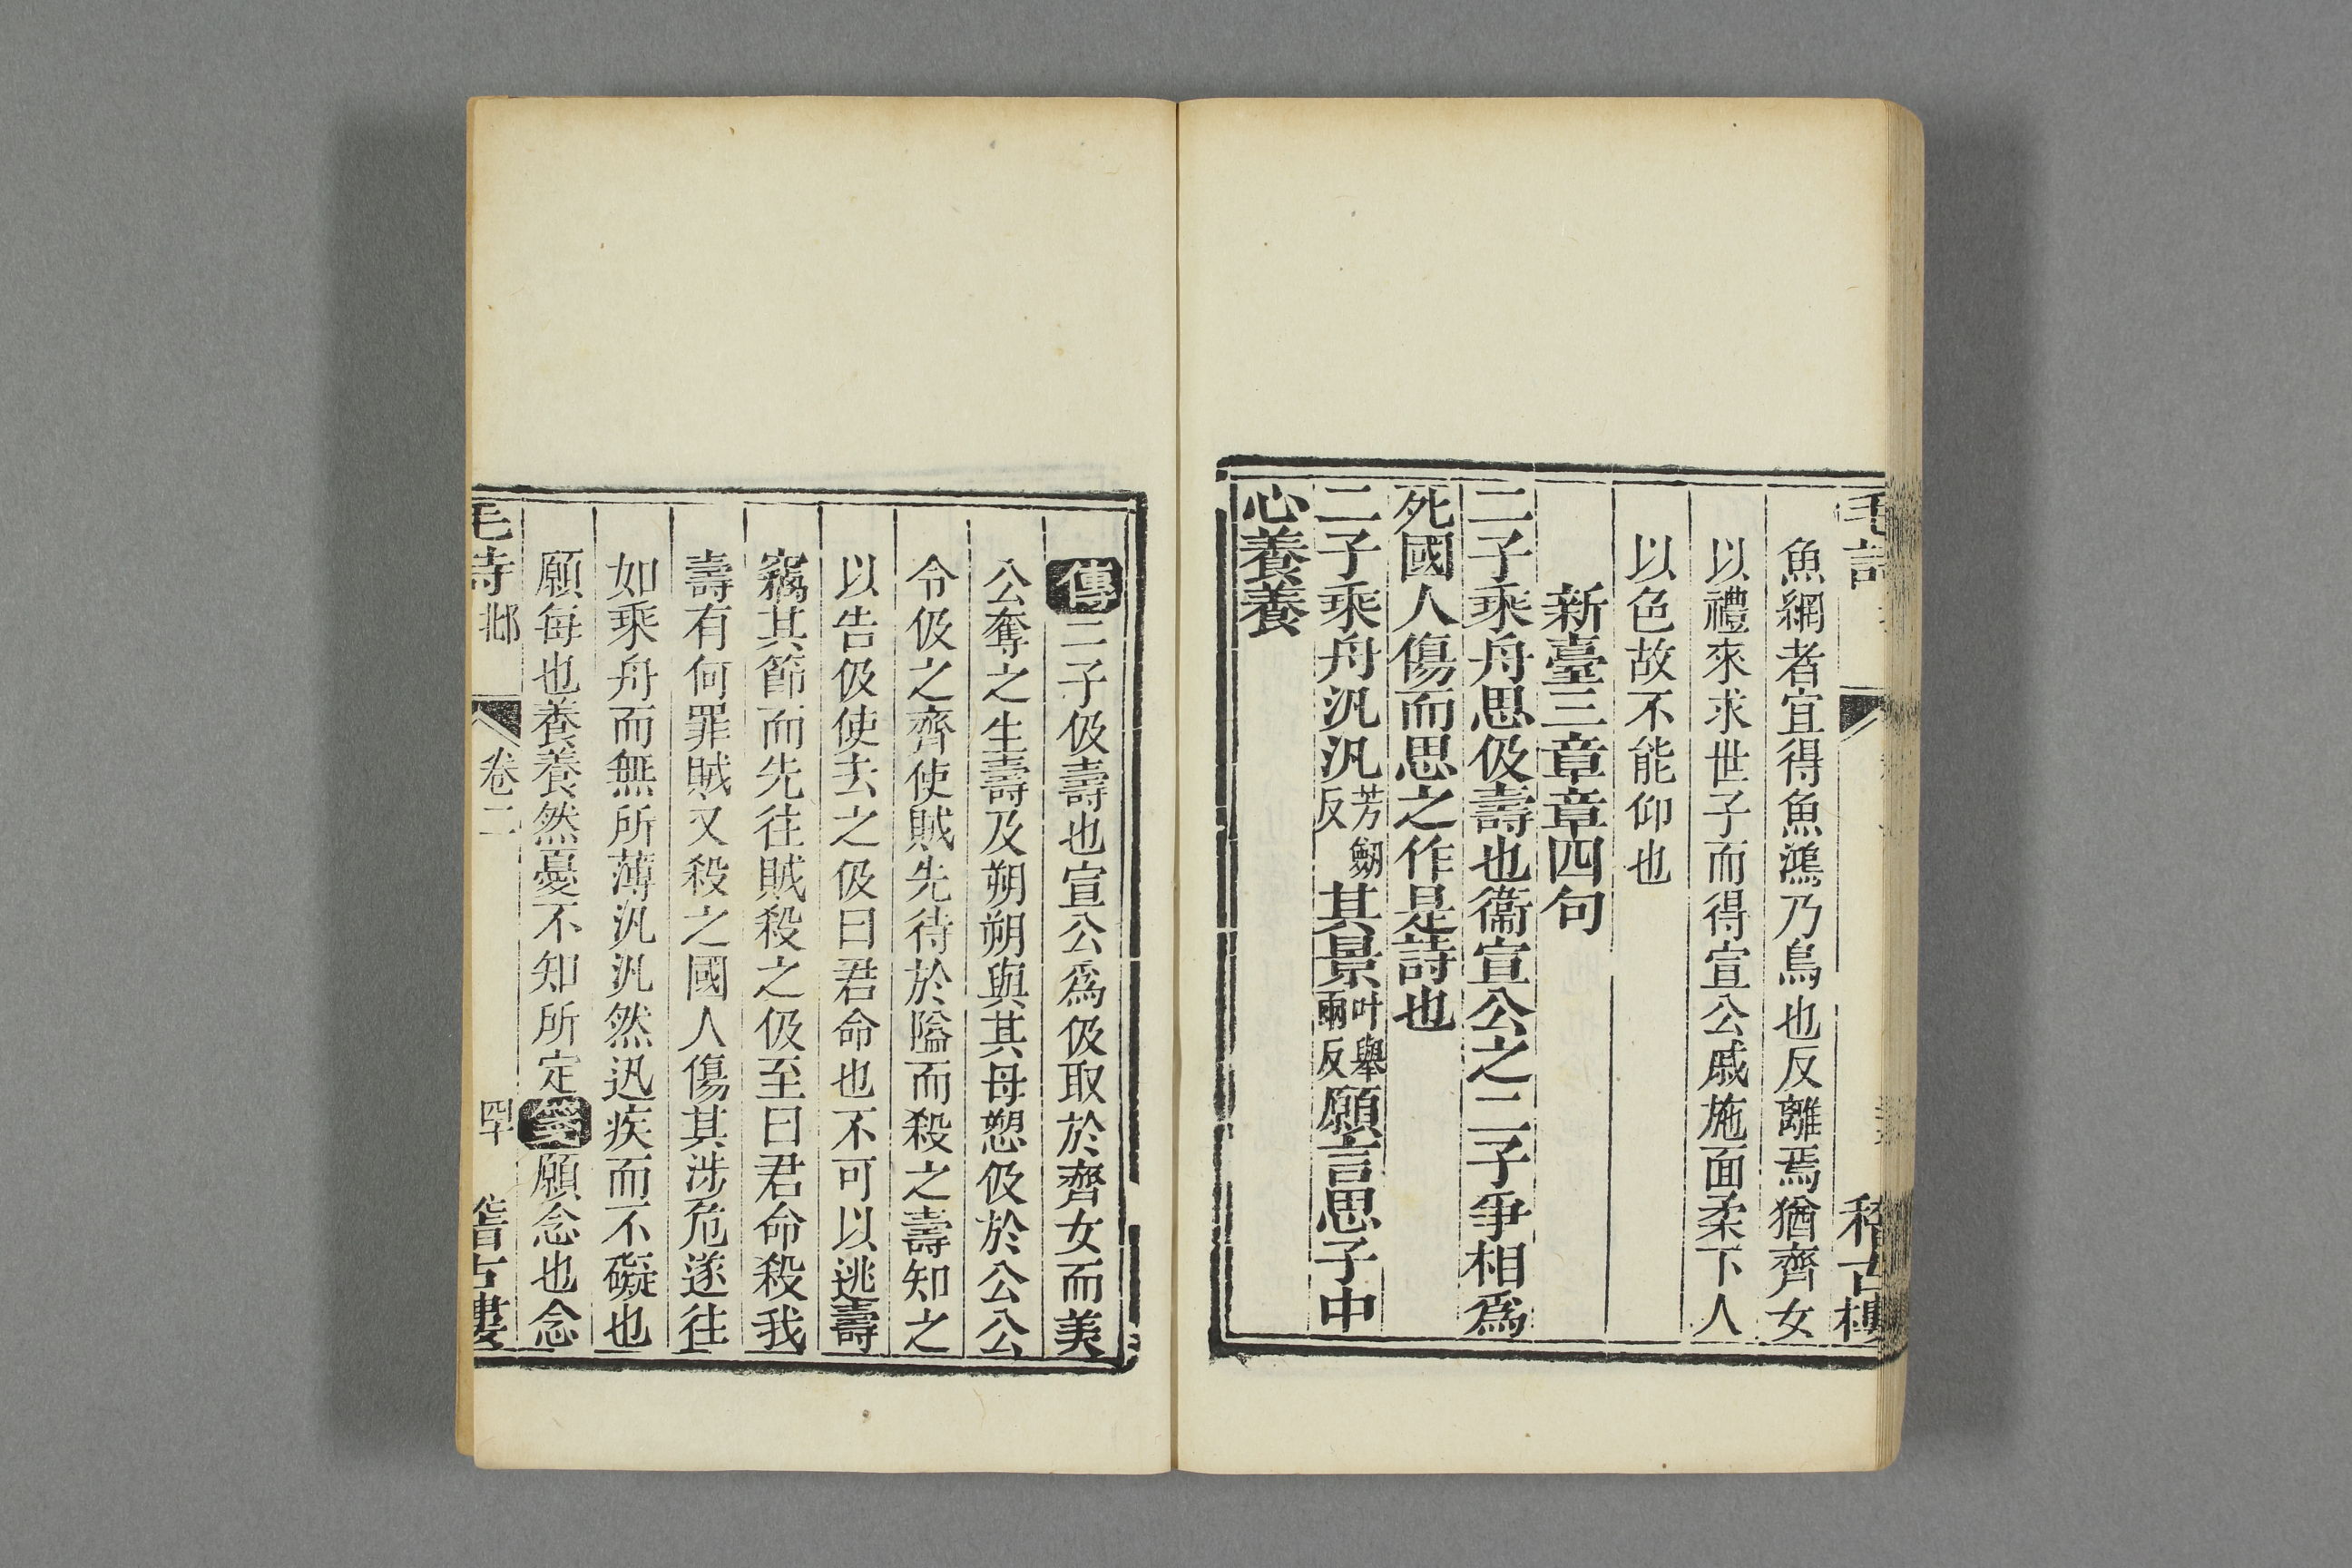 毛詩
稽古樓
魚網者宜得魚鴻乃鳥也反離焉猶齊女
以禮來求世子而得宣公戚施面柔下人
以色故不能仰也
新臺三章章四句
二子乘舟思伋壽也衞宣公之二子爭相爲
死國人傷而思之作是詩也
二子乘舟汎汎芳劒反其景叶舉兩反願言思子中
心養養
傳二子伋壽也宣公爲伋取於齊女而美
公奪之生壽及朔朔與其母愬伋於公公
令伋之齊使賊先待於隘而殺之壽知之
以告伋使去之伋曰君命也不可以逃壽
竊其節而先往賊殺之伋至曰君命殺我
壽有何罪賊又殺之國人傷其涉危遂往
如乘舟而無所薄汎汎然迅疾而不礙也
願每也養養然憂不知所定箋願念也念
毛詩 邶 卷二 四十 稽古樓